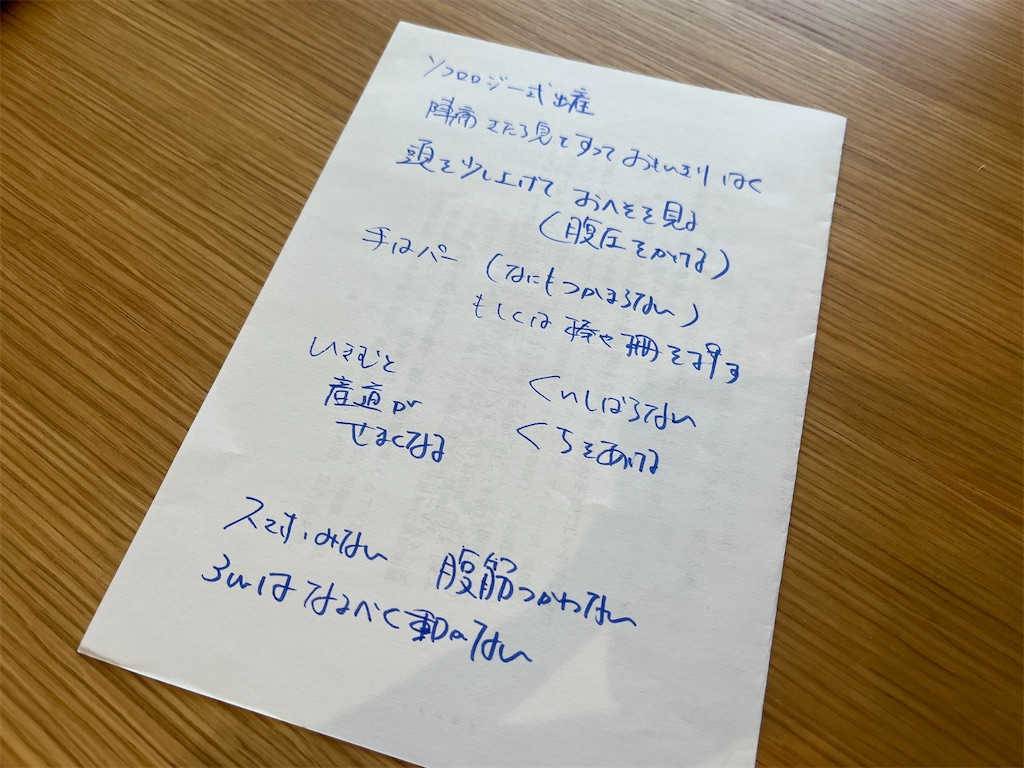 ソフロロジー式出産
陣痛きたら見てすって おもいきり はく
頭を少し上げて おへそを見る
(腹圧をかける)
手はパー (なにもつかまらない)
もしくは 棒や 柵を押す
いきむと
産道が
せまくなる
くいしばらない
くちをあける
スマホみない 腹筋つかわない
3wはなるべく動かない